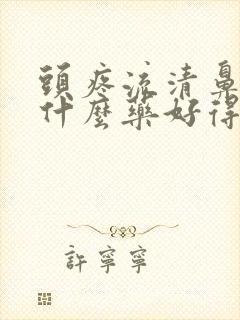 頭疼流清鼻
什麼藥好得
許寧寧